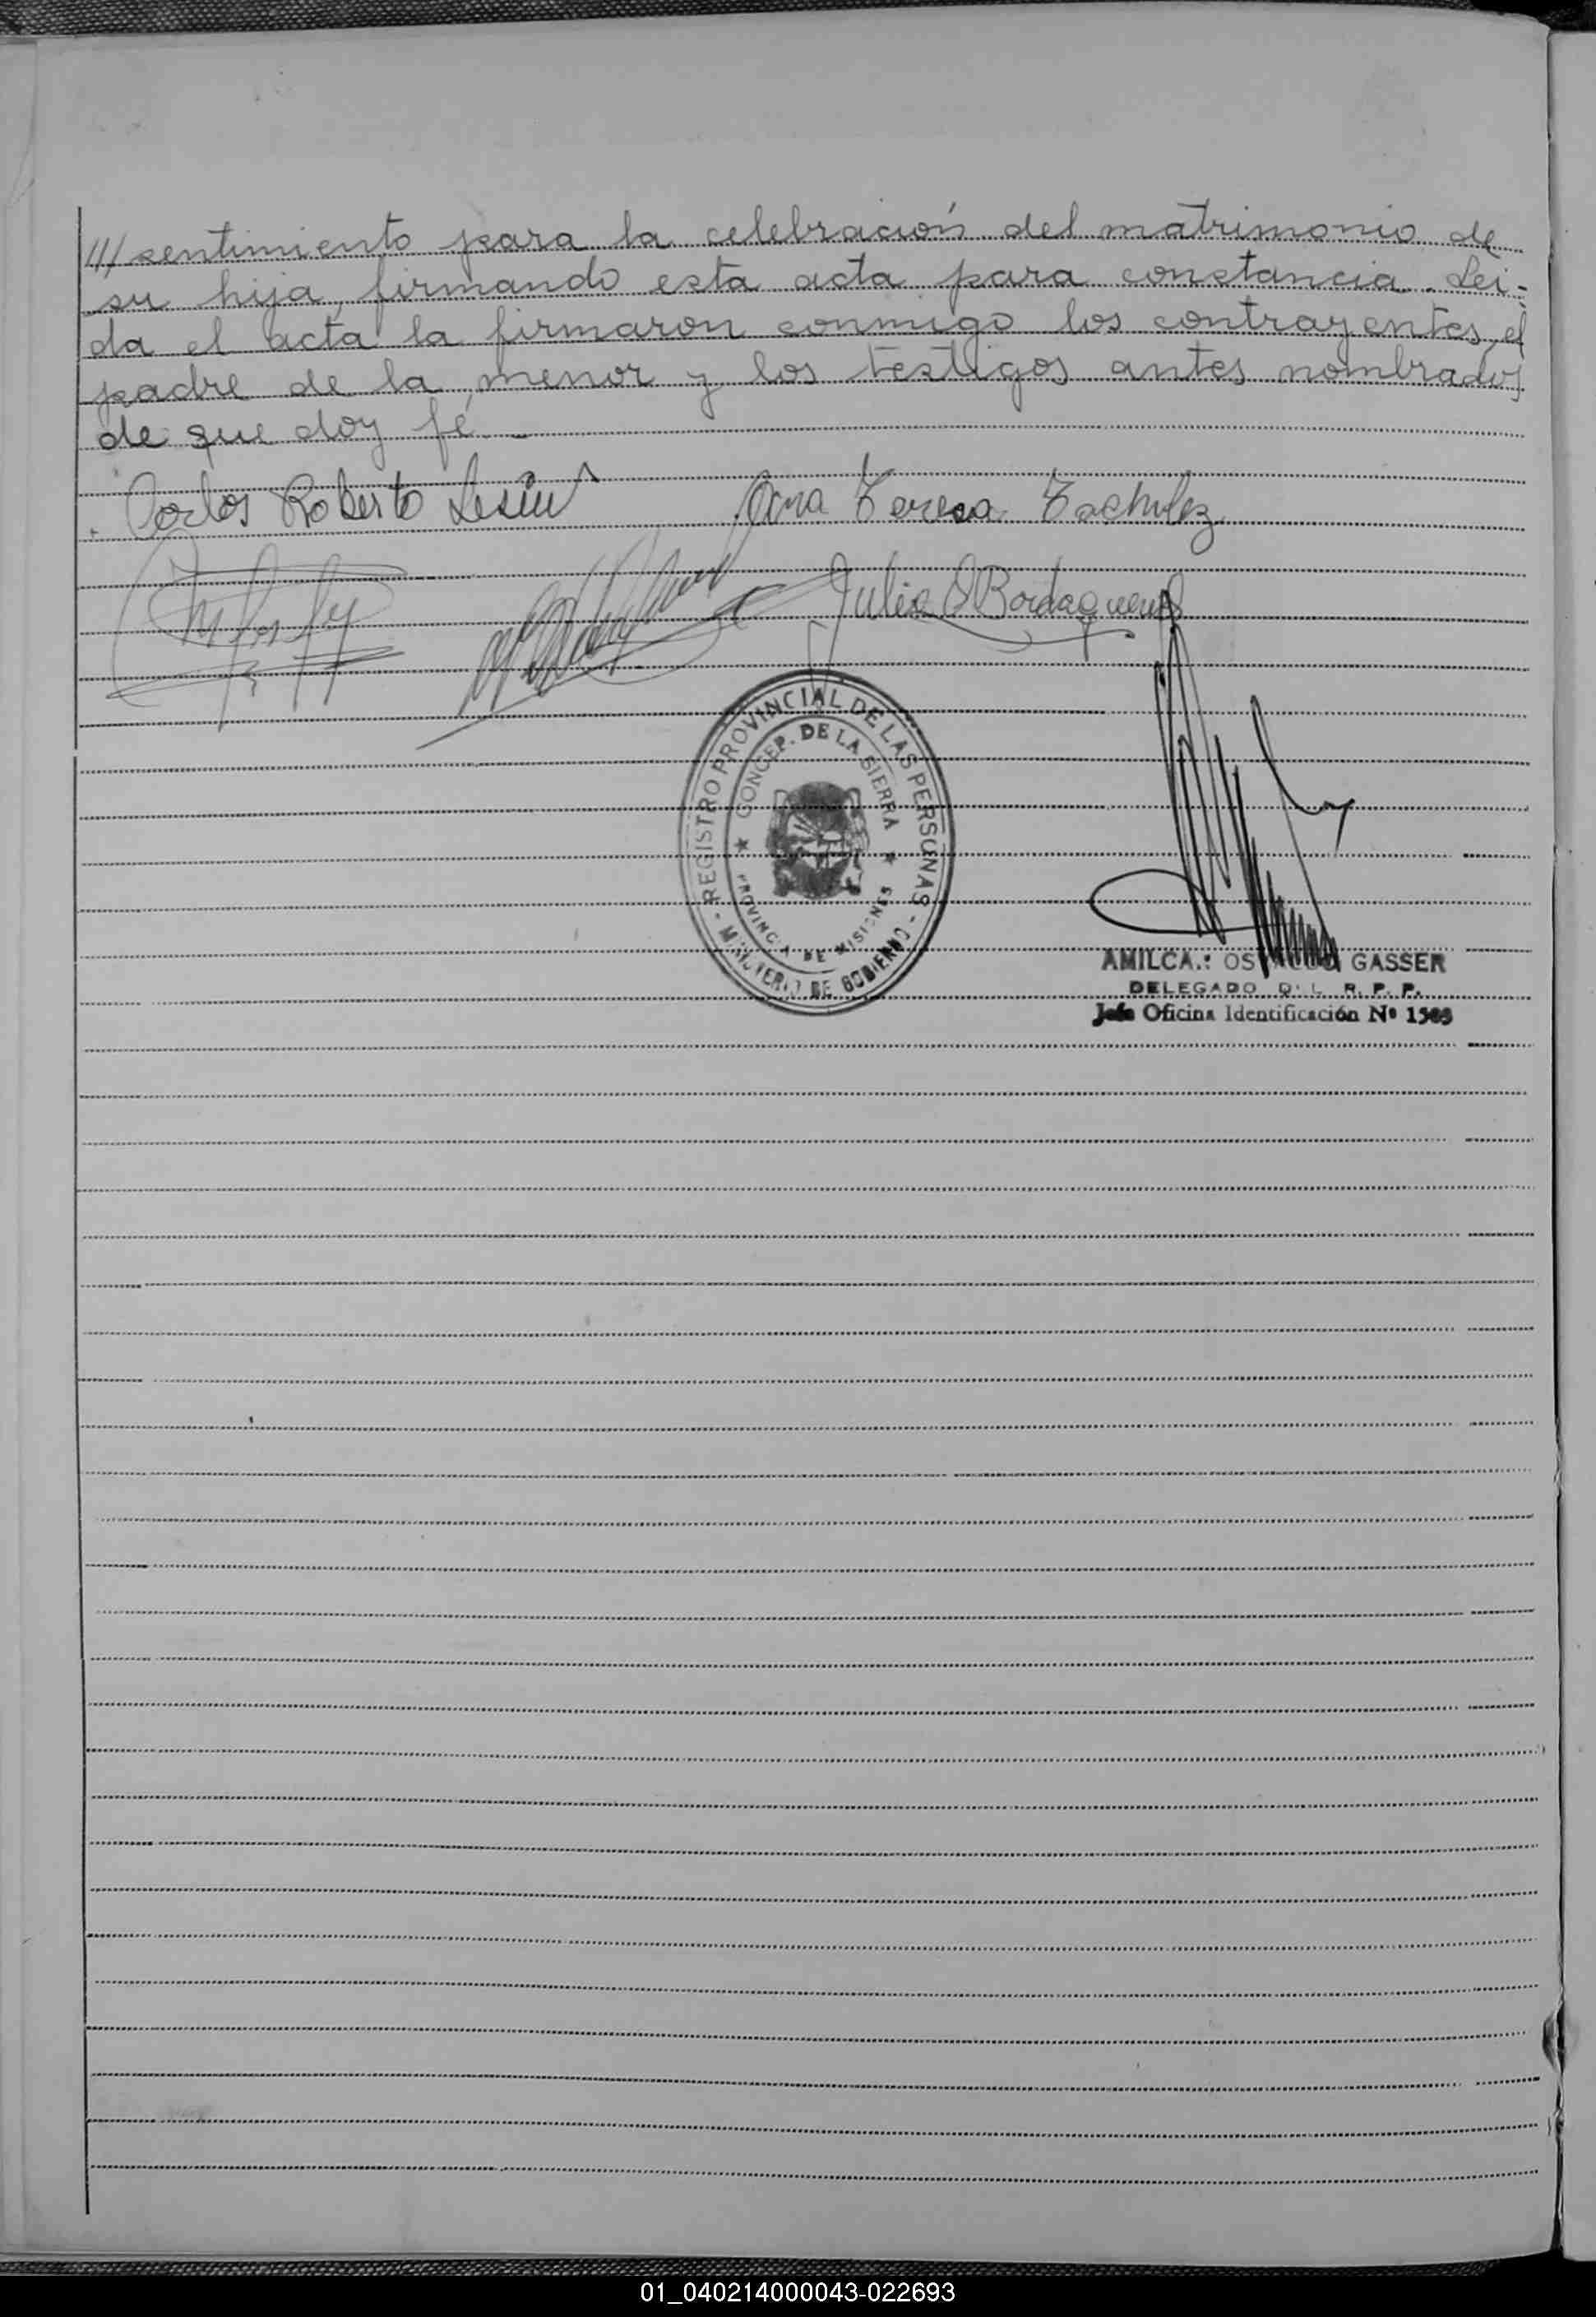 /// sentimiento para la celebración del matrimonio de
su hija, firmando esta acta para constancia. Lei-
da el acta la firmaron conmigo los contrayentes, el
padre de la menor y los testigos antes nombrados
de que doy fé. -
Carlos Roberto Ana Teresa
Julia
REGISTRO PROVINCIAL DE LAS PERSONAS
CONCEP. DE LA SIERRA
PROVINCIA DE MISIONES
- MINISTERIO DE GOBIERNO -
GASSER
DELEGADO D L R. P. P.
Jefe Oficina Identificación Nº
01_040214000043-022693